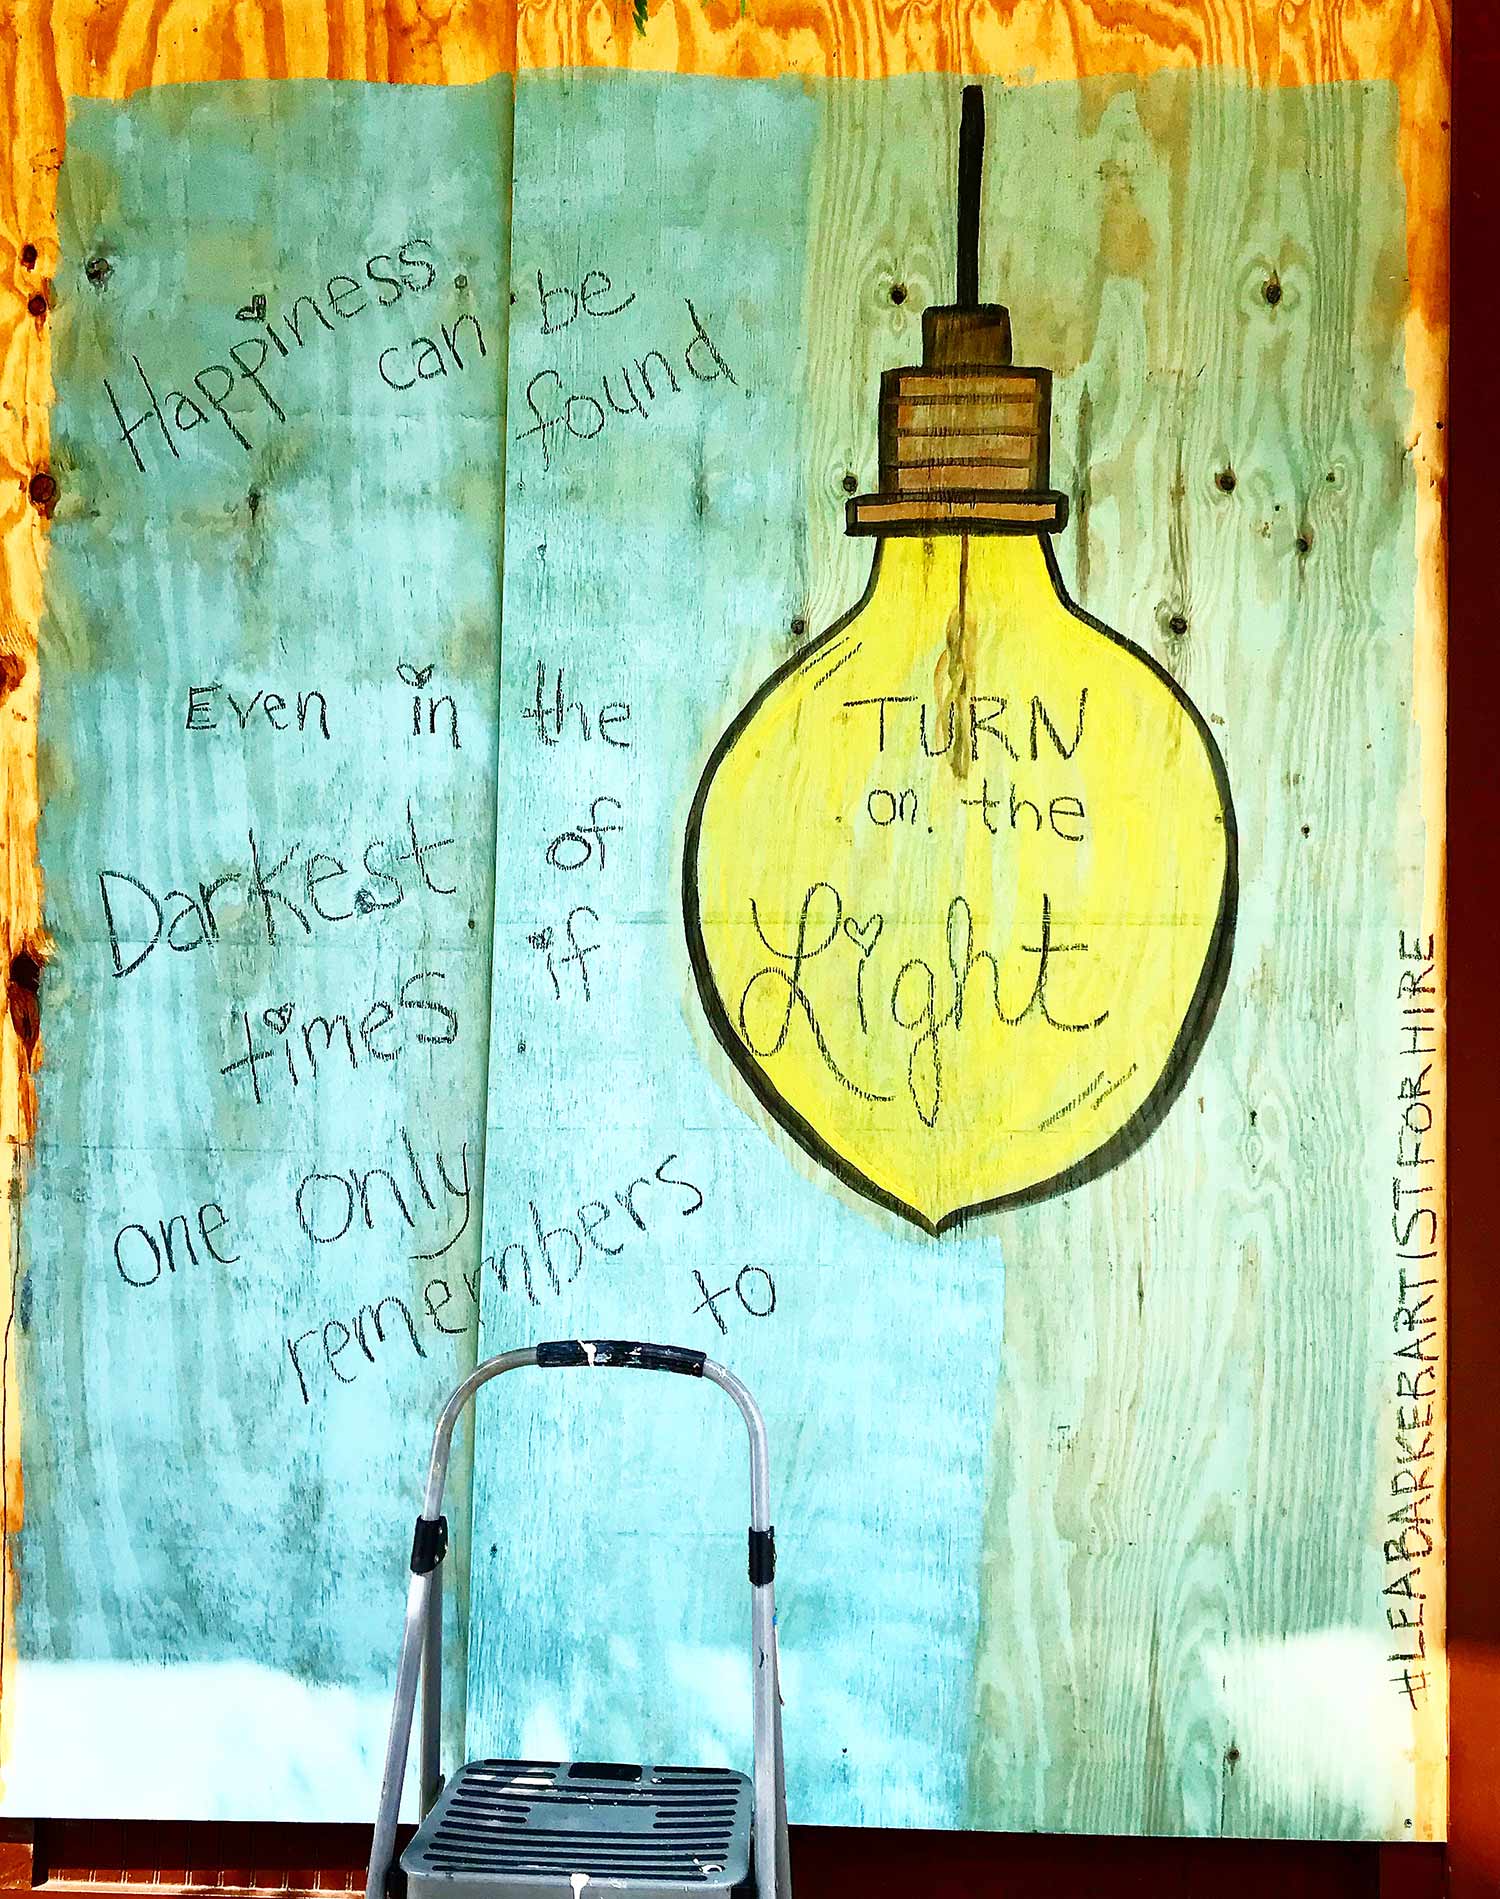 Happiness can be found
Even in the
Darkest of
times if
one only
remembers to
TURN
on the
Light
#LEABARKERARTISTFORHIRE